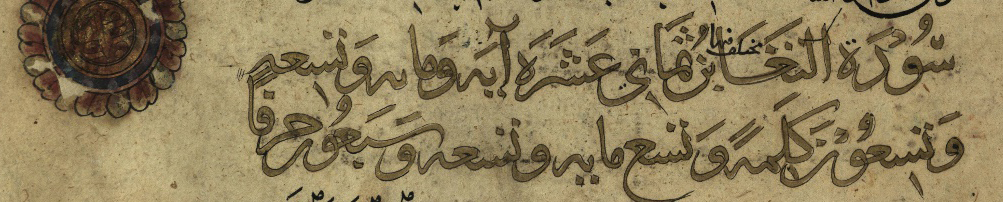 سُوۡرَة التغَابن ثمَاني عَشَرَة آيَة وَمايه وَتسعه
وَتسعُوۡنَ كَلِمَةً وَتسع مايه وتسعه وَسَبعُوۡ حرفًا